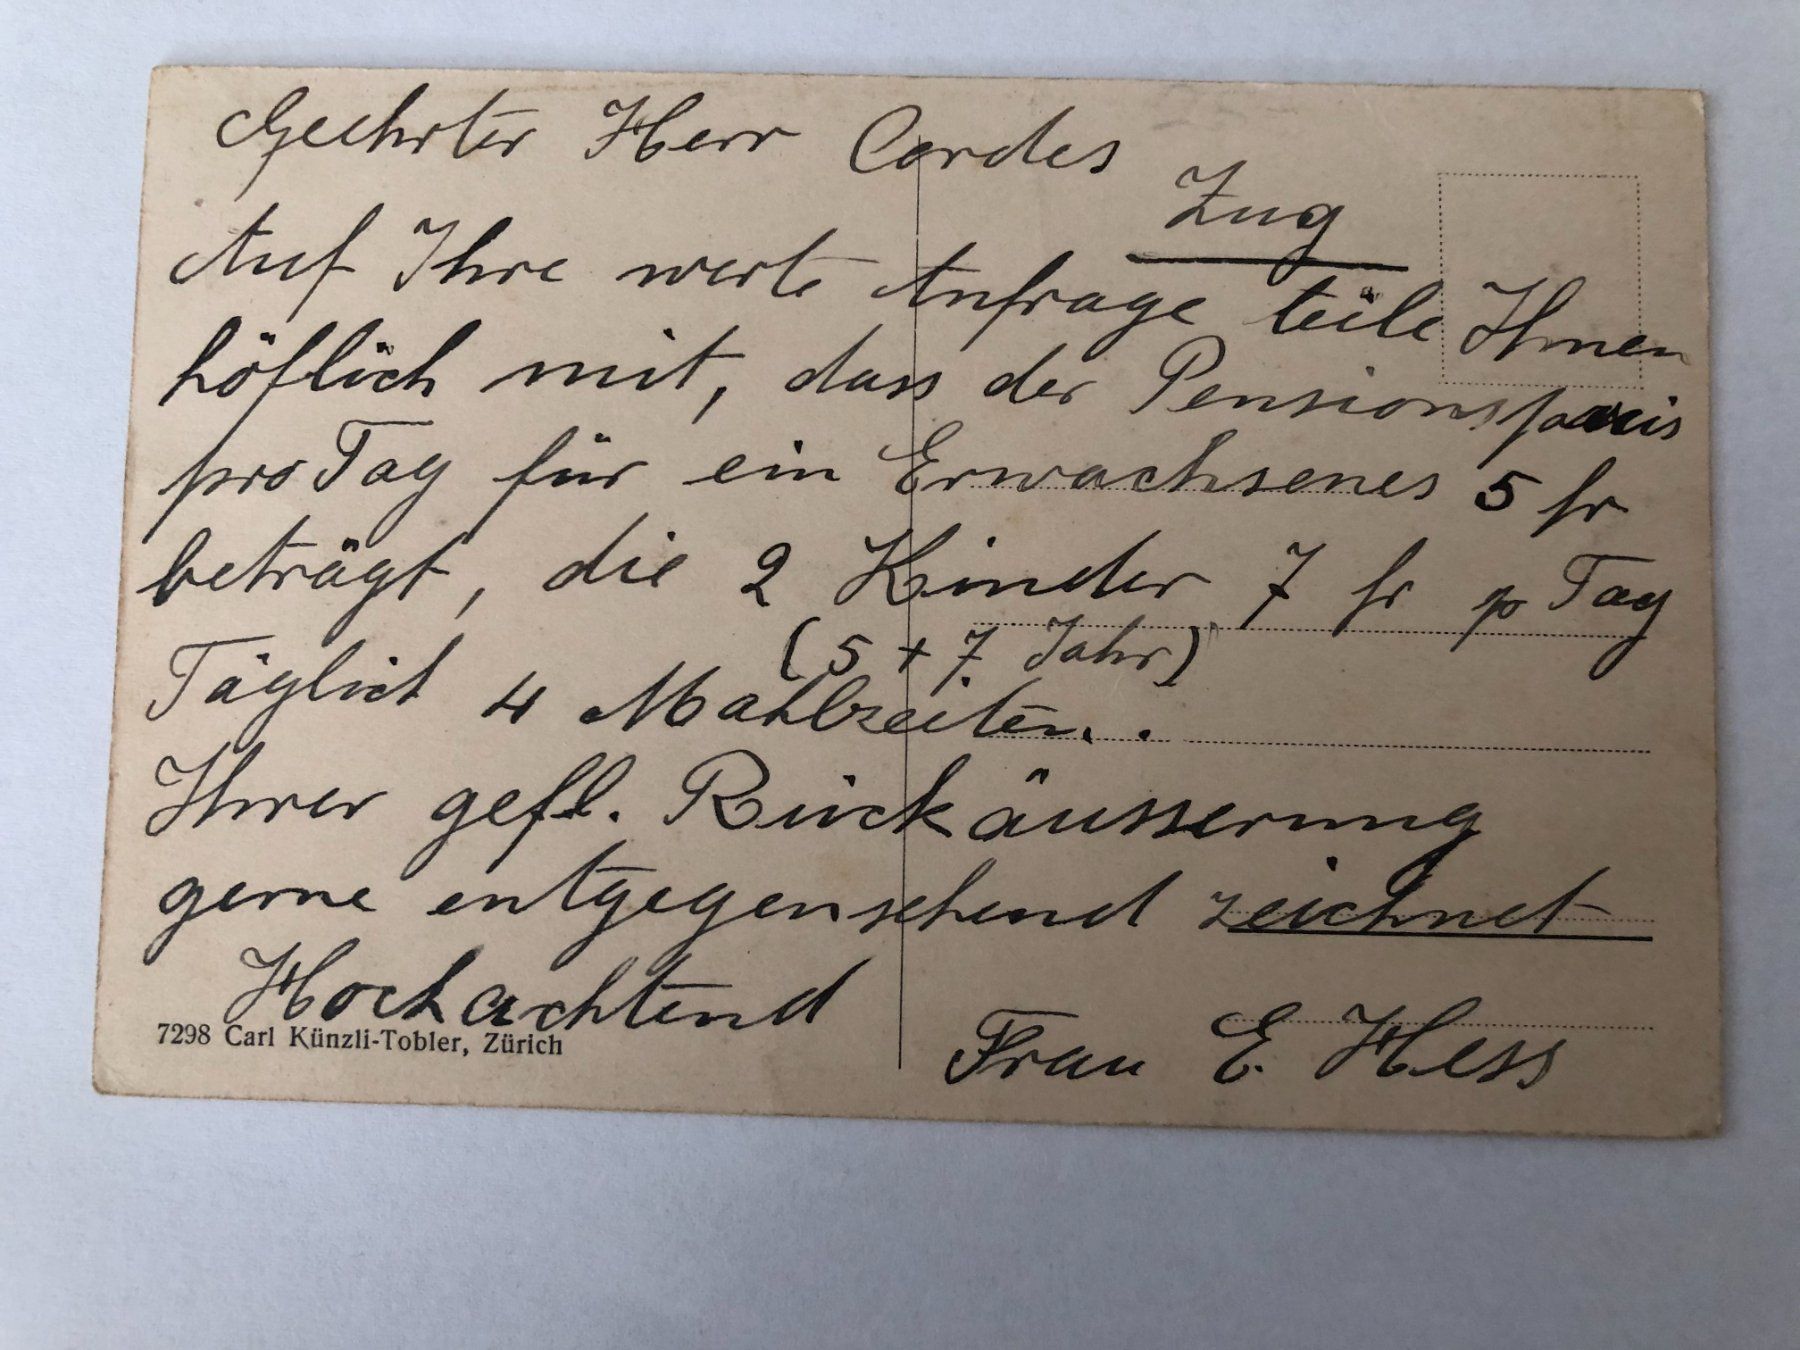 Geehrter Herr Cordes
Zug
Auf Ihre werte Anfrage teile Ihnen
höflich mit, dass der Pensionspreis
pro Tag für ein Erwachsenes 5 fr
beträgt, die 2 Kinder 7 fr p Tag
(5 + 7 Jahr)
Täglich 4 Mahlzeiten..
Ihrer gefl. Rückäusserung
gerne entgegensehend zeichnet
Hochachtend
7298 Carl Künzli-Tobler, Zürich
Frau E. Hess